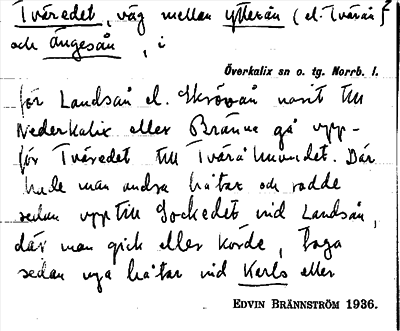 Tväredet, väg mellan Ytterån (el. Tvärån?)
och Ängesån, i
Överkalix sn o. tg. Norrb. l.
för Landsån el. Skrövån varit till
Nederkalix eller Bränna gå upp-
för Tväredet till Tvärå mundet. Där
hade man andra båtar och rodde
sedan upp till Gockedet vid Landsån,
där man gick eller körde, toga
sedan nya båtar vid Karls eller
EDVIN BRÄNNSTRÖM 1936.